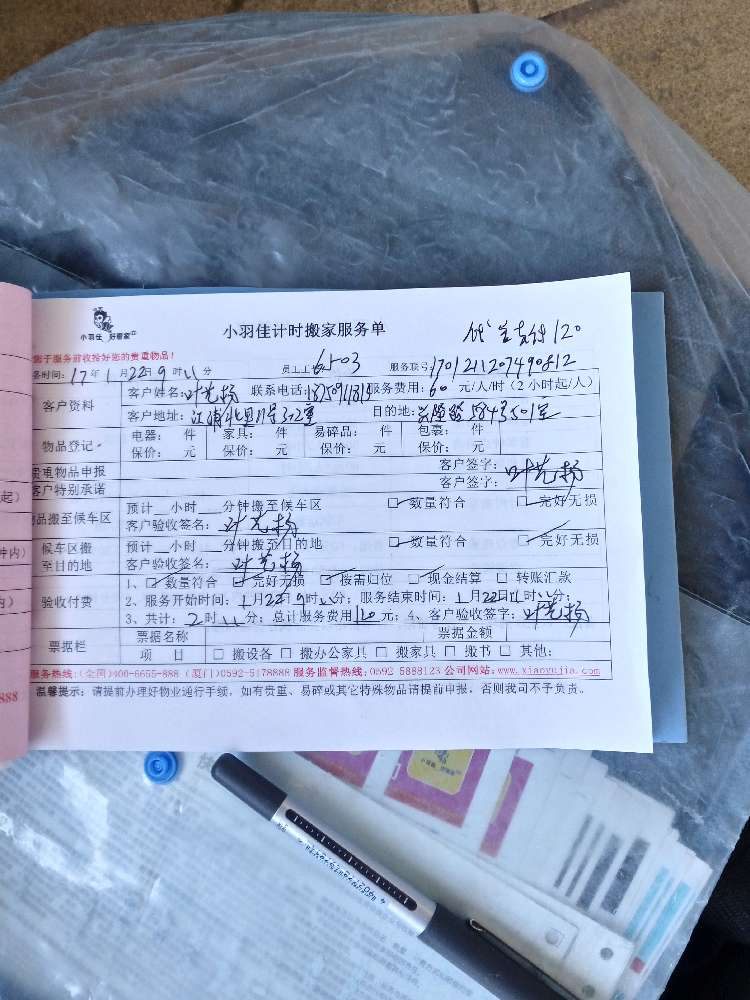 小羽佳 好搬家
小羽佳计时搬家服务单
支付120
您于服务前收拾好您的贵重物品!
务时间: 17年1月22日9时 分 员工工 6503 服务联号:1701211207490812
客户资料
客户姓名:叶艺扬 联系电话: 服务费用: 60 元/人/时(2小时起/人)
客户地址: 江浦北里11号312室 目的地: 584号501室
物品登记
电器: 件 家具: 件 易碎品: 件 包裹: 件
保价: 元 保价: 元 保价: 元 保价: 元
贵重物品申报 客户签字: 叶艺扬
客户特别承诺 客户签字:
品搬至候车区
预计__小时__分钟搬至候车区 数量符合 完好无损
客户验收签名: 叶艺扬
候车区搬至目的地
预计__小时__分钟搬至目的地 数量符合 完好无损
客户验收签名: 叶艺扬
验收付费
1、 数量符合 完好无损 按需归位 现金结算 转账汇款
2、服务开始时间: 1月22日9时 分; 服务结束时间: 1月22日11时 分;
3、共计: 2时 分; 总计服务费用120元; 4、客户验收签字: 叶艺扬
票据栏
票据名称 票据金额
项 目 搬设备 搬办公家具 搬家具 搬书 其他:
服务热线:(全国)400-6655-888 (厦门)0592-5178888 服务监督热线:0592 5888123 公司网站:www.xiaoyujia.com
温馨提示:请提前办理好物业通行手续,如有贵重、易碎或其它特殊物品请提前申报,否则我司不予负责。
起)
钟内)
内)
888